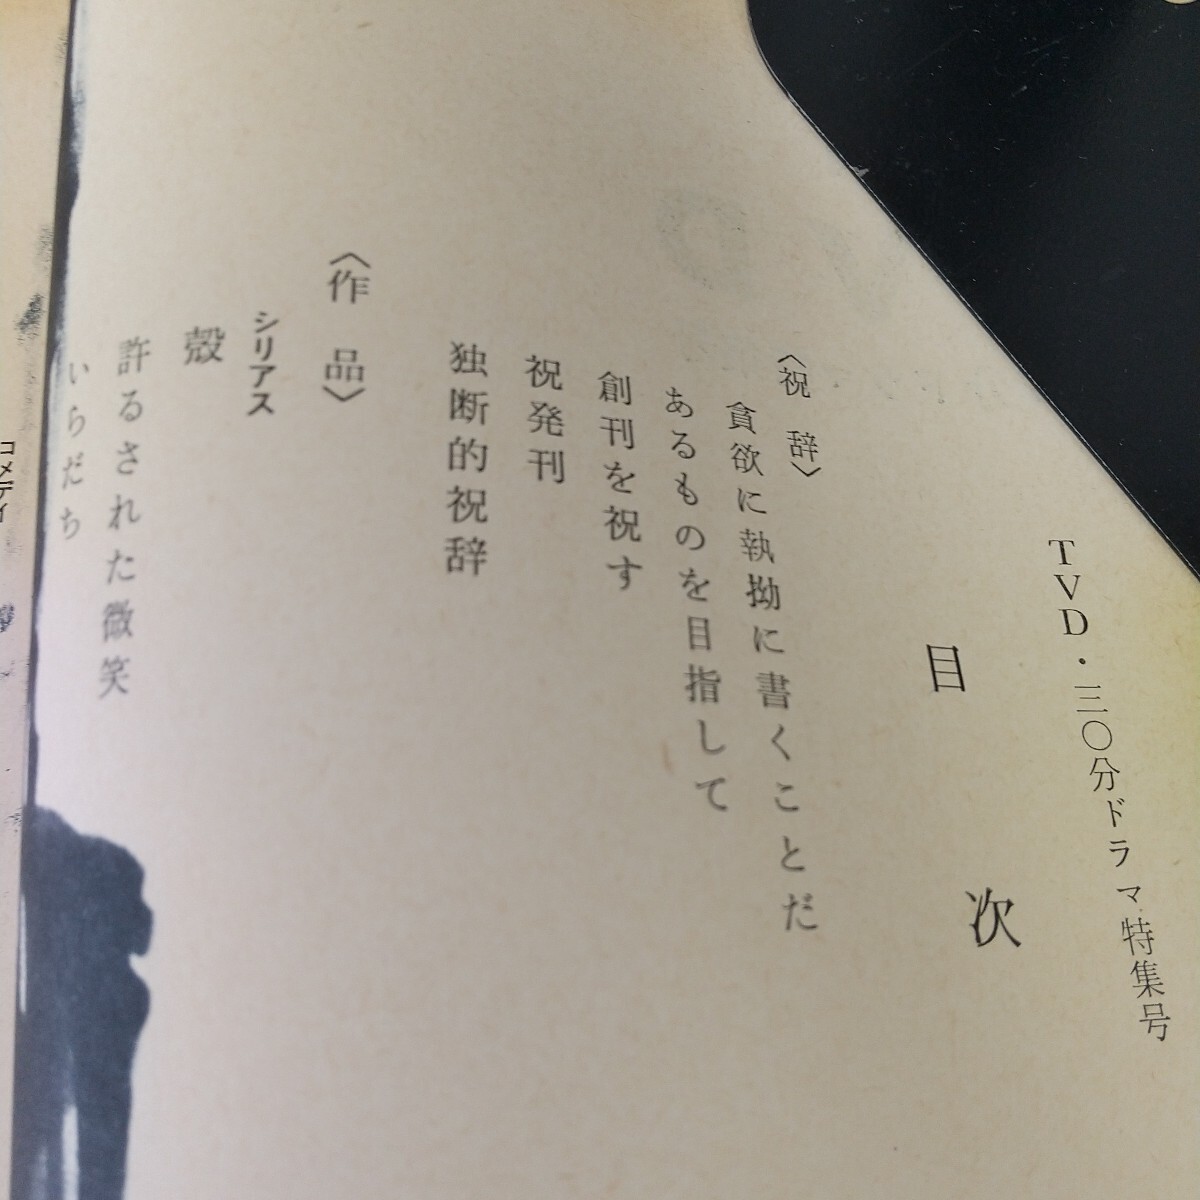 TVD・三〇分ドラマ特集号
目次
〈祝辞〉
貪欲に執拗に書くことだ
あるものを目指して
創刊を祝す
祝発刊
独断的祝辞
〈作品〉
シリアス
殻
許るされた微笑
いらだち
コメディ